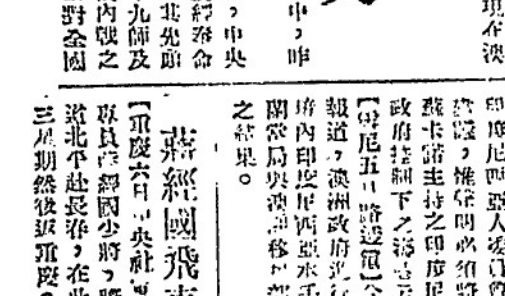 現在澳
中,昨
,中央
經奉命
北先頭
九師及
內戰之
對全國
印度尼西亞人
建議,惟聲明必須將
蘇卡諾主持之印度尼
政府控制下之
【雪尼五日路透電】
報道,澳洲政府進行
境內印度尼西亞水手
關當局與澳洲移民部
之結果。
蔣經國飛
【重慶六日中央社
專員蔣經國少將,將
道北平赴長春,在此
三星期然後返重慶。